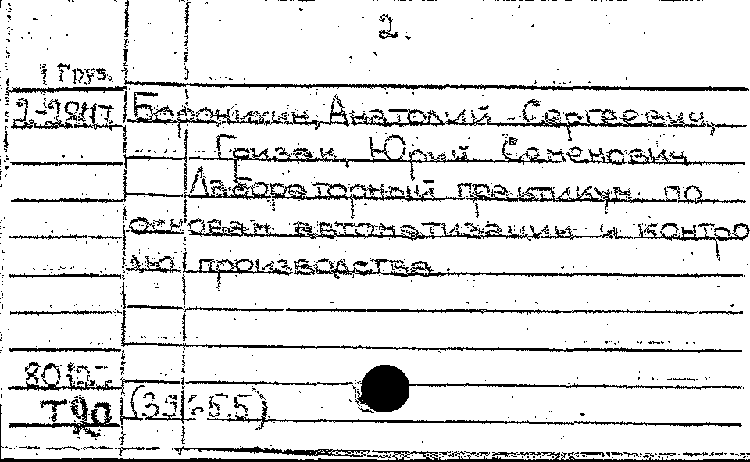 2.
1 Груз.
Боронихин, Анатолий Сергеевич,
Гризак, Юрий Семенович
Лабораторный практикум по
основам автоматизации и контро
лю производства
Т90